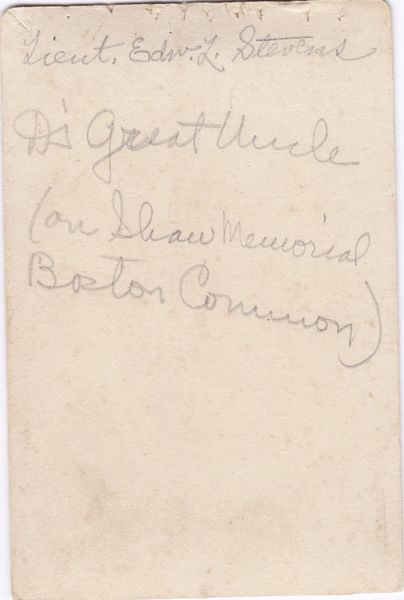 Lieut. Edw. L. Stevens
D's Great Uncle
(on Shaw Memorial
Boston Common)